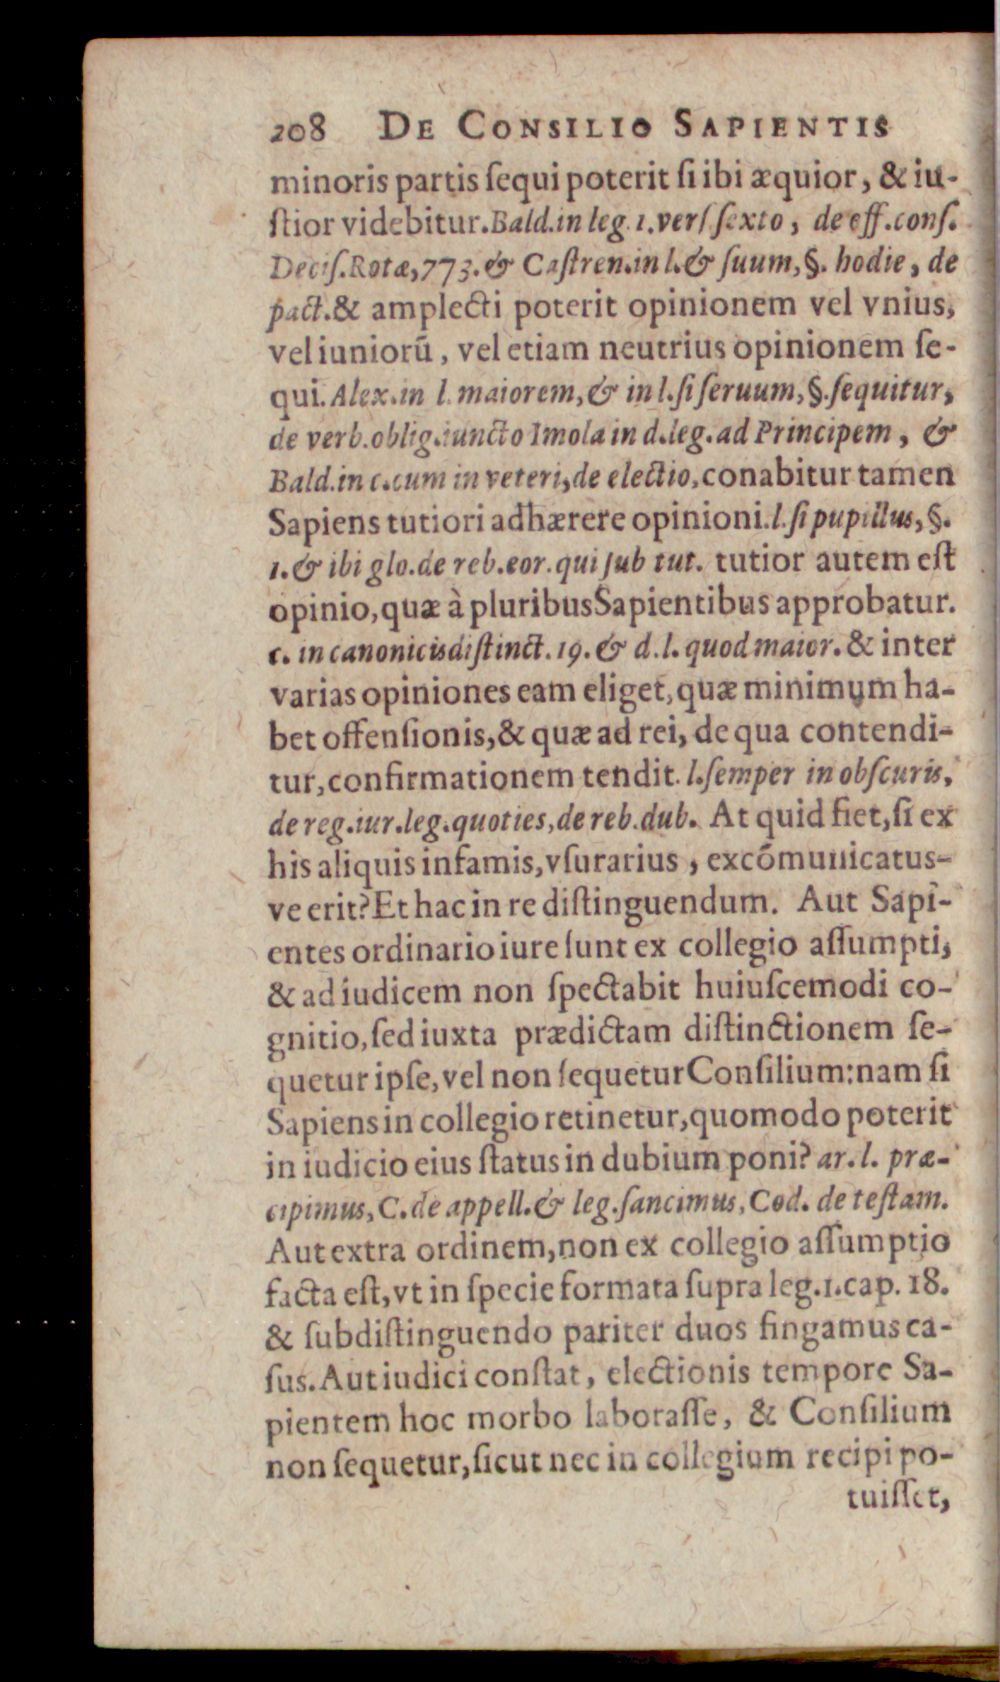 208 DE CONSILIO SAPIENTIS
minoris partis ſequi poterit ſi ibi æquior, & iu-
ſtior videbitur. Bald. in leg. 1. verſ ſexto, de eff. conſ.
Deciſ. Rotæ, 773. & Caſtren. in l. & ſuum, §. hodie, de
pact. & amplecti poterit opinionem vel vnius,
vel iuniorū, vel etiam neutrius opinionem ſe-
qui. Alex. in l. maiorem, & in l. ſi ſeruum, §. ſequitur,
de verb. oblig. iuncto Imola in d. leg. ad Principem, &
Bald. in c. cum in veteri, de electio, conabitur tamen
Sapiens tutiori adhærere opinioni. l. ſi pupillus, §.
1. & ibi glo. de reb. eor. qui ſub tut. tutior autem eſt
opinio, quæ à pluribus Sapientibus approbatur.
c. in canonicis diſtinct. 19. & d. l. quod maior. & inter
varias opiniones eam eliget, quæ minimum ha-
bet offenſionis, & quæ ad rei, de qua contendi-
tur, confirmationem tendit. l. ſemper in obſcuris,
de reg. iur. leg. quoties, de reb. dub. At quid fiet, ſi ex
his aliquis infamis, vſurarius, excōmunicatus-
ve erit? Et hac in re diſtinguendum. Aut Sapi-
entes ordinario iure ſunt ex collegio aſſumpti,
& ad iudicem non ſpectabit huiuſcemodi co-
gnitio, ſed iuxta prædictam diſtinctionem ſe-
quetur ipſe, vel non ſequetur Conſilium: nam ſi
Sapiens in collegio retinetur, quomodo poterit
in iudicio eius ſtatus in dubium poni? ar. l. præ-
cipimus, C. de appell. & leg. ſancimus, Cod. de teſtam.
Aut extra ordinem, non ex collegio aſſumptio
facta eſt, vt in ſpecie formata ſupra leg. 1. cap. 18.
& ſubdiſtinguendo pariter duos fingamus ca-
ſus. Aut iudici conſtat, electionis tempore Sa-
pientem hoc morbo laboraſſe, & Conſilium
non ſequetur, ſicut nec in collegium recipi po-
tuiſſet,